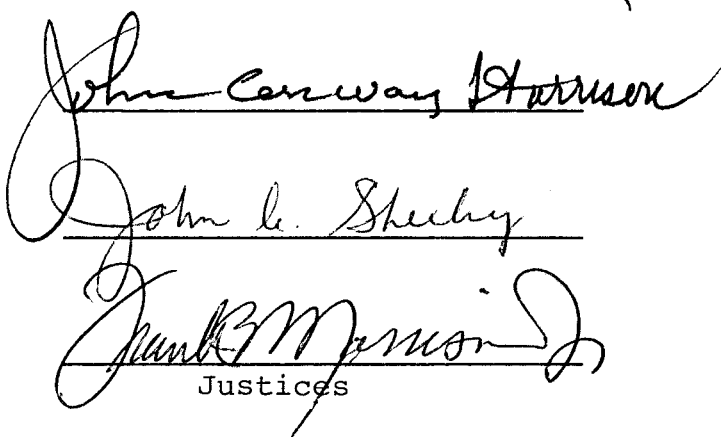 John Conway Harrison
John C. Sheehy
Frank B. Morrison Jr.
Justices